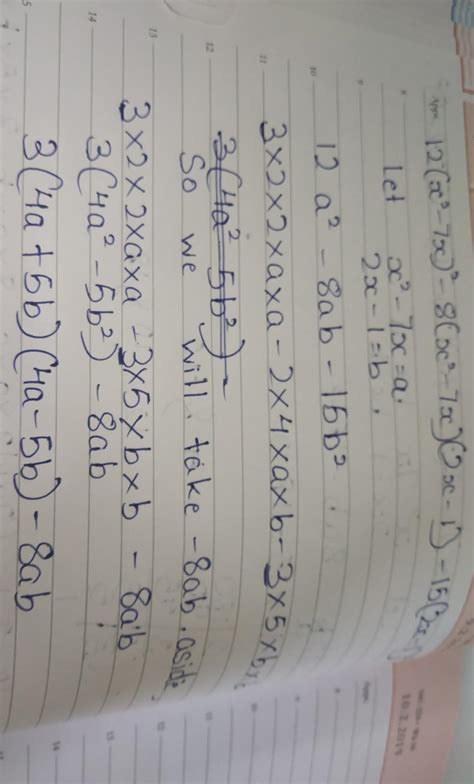 12(x² - 7x)² - 8(x² - 7x)(2x - 1) - 15(2x
Let x² - 7x = a.
2x - 1 = b.
12 a² - 8ab - 15b²
3×2×2×a×a - 2×4×a×b - 3×5×b×
3(4a² - 5b²) -
So we will take - 8ab. aside
3×2×2×a×a - 3×5×b×b - 8ab
3(4a² - 5b²) - 8ab
3(4a + 5b)(4a - 5b) - 8ab